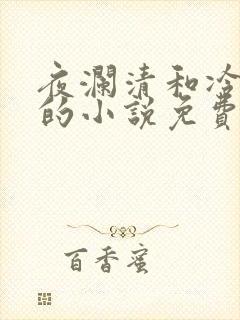 夜瀾清和冷
的小說免費
百香蜜